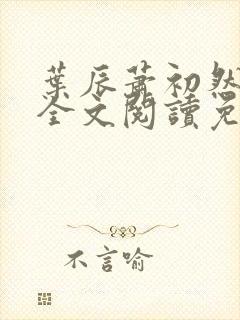 葉辰蕭初然
全文閱讀免
不言喻